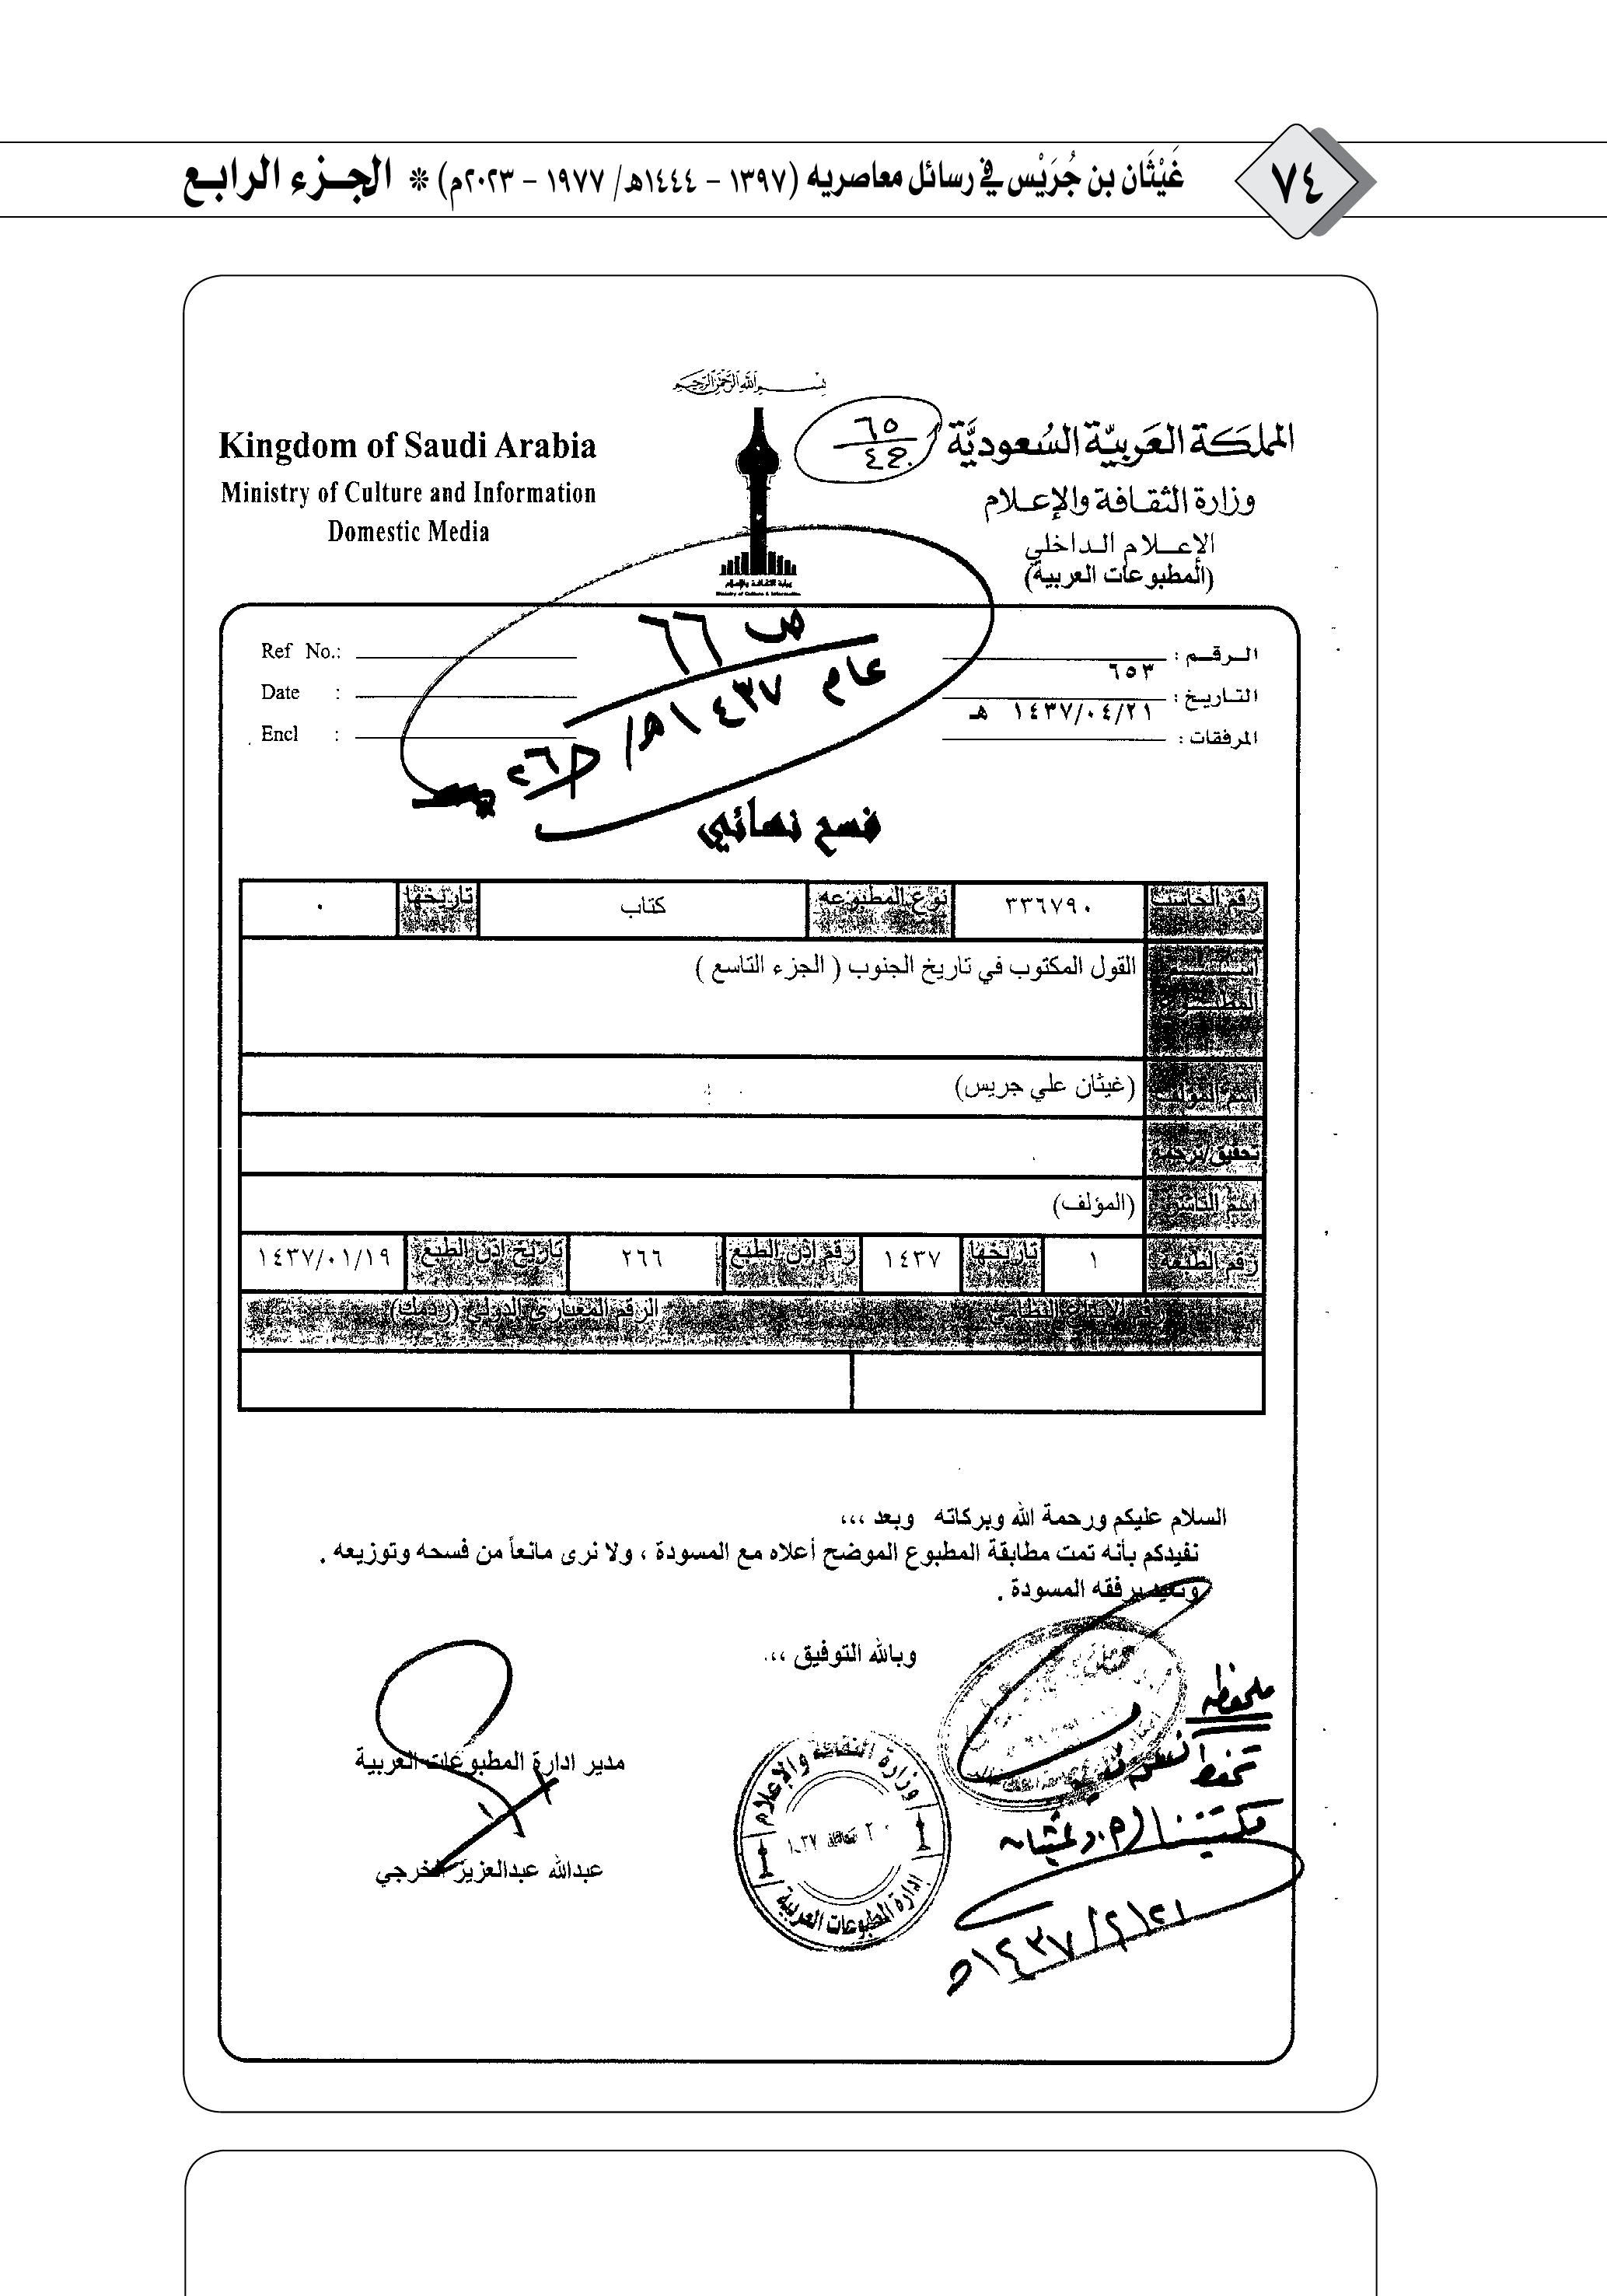 ٧٤
غَيْثَان بن جُرَيْس في رسائل معاصريه (١٣٩٧ - ١٤٤٤هـ/ ١٩٧٧ - ٢٠٢٣م) * الجزء الرابع
بسم الله الرحمن الرحيم
المملكة العربيّة السُعوديَّة
وزارة الثقافة والإعلام
الإعلام الداخلي
(المطبوعات العربية)
٦٥
Kingdom of Saudi Arabia
Ministry of Culture and Information
Domestic Media
وزارة الثقافة والإعلام
Ministry of Culture & Information
الرقم :
٦٥٣
التاريخ :
١٤٣٧/٠٤/٢١ هـ
المرفقات :
Ref No.:
Date :
Encl :
ص ٦٦
عام ١٤٣٧هـ/
فسح نهائي
رقم الحاسب ٣٣٦٧٩٠ نوع المطبوعه كتاب تاريخها ٠
اسم المطبوع القول المكتوب في تاريخ الجنوب ( الجزء التاسع )
اسم المؤلف (غيثان علي جريس)
تحقيق/ترجمة
اسم الناشر (المؤلف)
رقم الطبعة ١ تاريخها ١٤٣٧ رقم اذن الطبع ٢٦٦ تاريخ اذن الطبع ١٤٣٧/٠١/١٩
الرقم المعياري الدولي (ردمك)
السلام عليكم ورحمة الله وبركاته وبعد ،،،
نفيدكم بأنه تمت مطابقة المطبوع الموضح أعلاه مع المسودة ، ولا نرى مانعاً من فسحه وتوزيعه .
ونعيد برفقه المسودة .
وبالله التوفيق ،،،
مدير ادارة المطبوعات العربية
عبدالله عبدالعزيز الخرجي
وزارة الثقافة والإعلام
إدارة المطبوعات العربية
ملحوظه
تحفظ
مكتبتنا